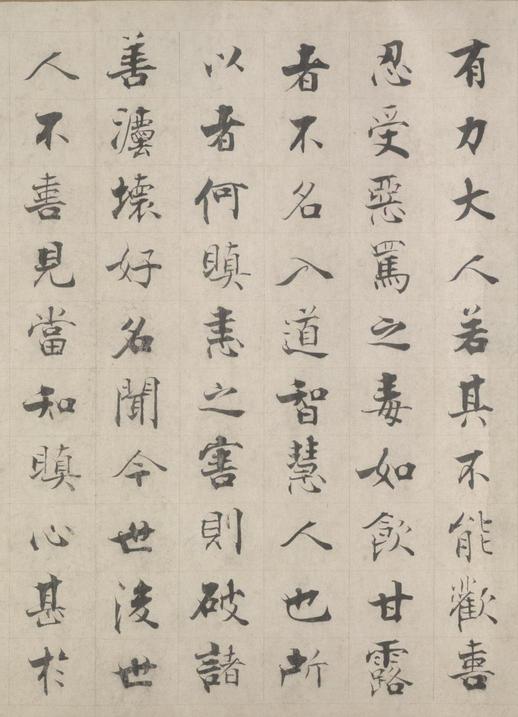 有力大人若其不能歡喜
忍受惡罵之毒如飲甘露
者不名入道智慧人也所
以者何瞋恚之害則破諸
善灋壞好名聞今世後世
人不喜見當知瞋心甚於